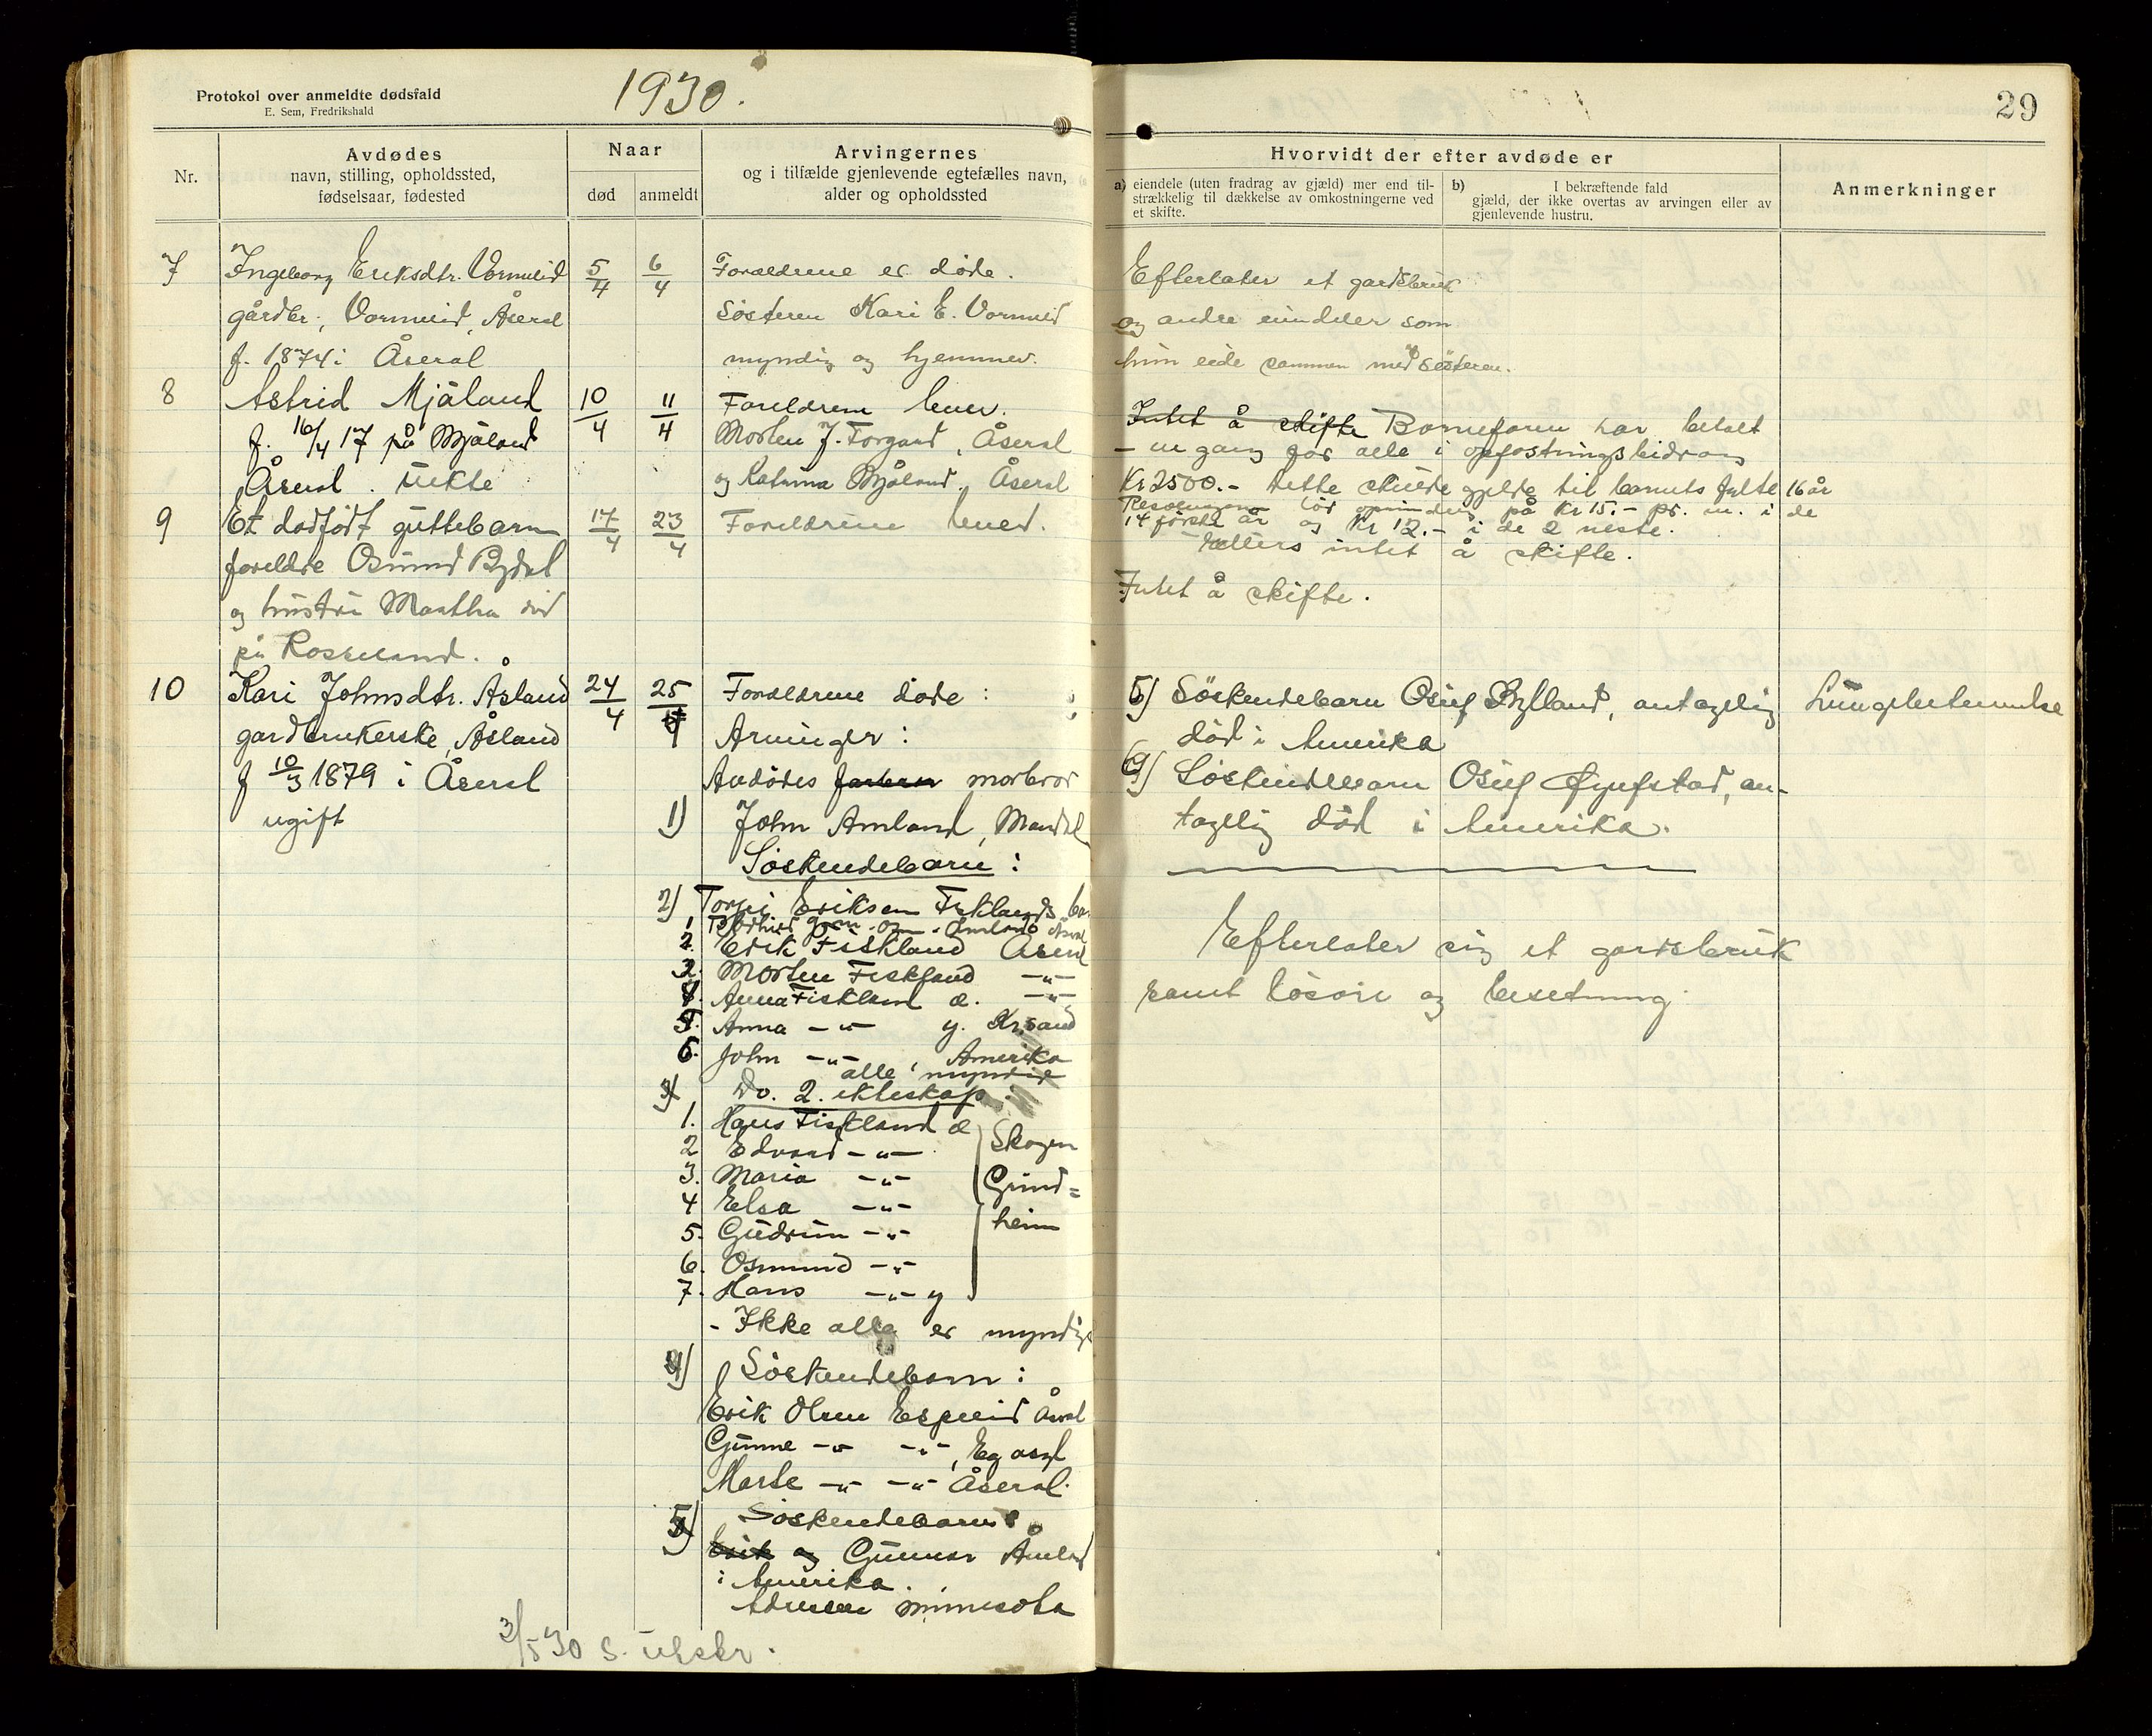 Protokol over anmeldte dødsfald
E. Sem, Fredrikshald
1930.
Nr.
Avdødes
navn, stilling, opholdssted,
fødselsaar, fødested
Naar
død
anmeldt
Arvingernes
og i tilfælde gjenlevende egtefælles navn,
alder og opholdssted
7
Ingeborg Eriksdtr. Vormeid
gårdbr., Vormeid, Åseral
f. 1874 i Åseral
5/4
6/4
Forældrene er døde.
Søsteren Kari E. Vormeid
myndig og hjemmev.
8
Astrid Mjåland
f. 16/4 17 på Mjåland
Åseral. uekte
10/4
11/4
Foreldrene lever.
Morten J. Forgard, Åseral
og Katrina Mjåland, Åseral
9
Et dødfødt guttebarn
foreldre Osmund Bydal
og hustru Martha
på Rosseland.
17/4
23/4
Foreldrene lever.
10
Kari Johnsdtr. Åsland
gardbrukerske Åsland
f 10/3 1879 i Åseral
ugift
24/4
25/4
Forældrene døde :
Arvinger :
Avdødes farbror morbror
1) John Amland, Mandal
Søskendebarn :
2) Torjei Eriksen Fisklands
2. Erik Fiskland Åseral
3. Morten Fiskland -"-
4. Anna Fiskland æ. -"-
5. Anna -"- y. Kr.sand
6. John -"- Amerika
alle myndig
3) Do. 2. ekteskap
1. Hans Fiskland æ
2 Edvard -"-
3. Maria -"-
4 Elsa -"-
5. Gudrun -"-
6. Osmund -"-
7. Hans -"- y
Skogen
Grind=
heim
- Ikke alle er myndige
4) Søskendebarn :
Erik Olsen Espeeid Åseral
Gunne -"- -"-, Eg asyl
Marte -"- -"- Åseral.
5) Søskendebarn
Erik og Gunnar Åmland
i Amerika.
Adresse Minnesota
3/5 30 S. utskr.
29
Hvorvidt der efter avdøde er
a) eiendele (uten fradrag av gjæld) mer end til-
strækkelig til dækkelse av omkostningerne ved
et skifte.
b) I bekræftende fald
gjæld, der ikke overtas av arvingen eller av
gjenlevende hustru.
Anmerkninger
Efterlater et gardsbruk
og andre eiendeler som
hun eide sammen med søsteren.
Intet å skifte Barnefaren har betalt
- en gang for alle i opfostringsbidrag
Kr 2500.- dette skulde gjelde til barnets fylte 16 år
på Kr 15.- pr. m. i de
14 første år og Kr 12.- i de 2 neste.
Ellers intet å skifte.
Intet å skifte.
5) Søskendebarn Osuf Bylland, antagelig
død i Amerika
6) Søskendebarn Osuf Øyufstad, an-
tagelig død i Amerika.
Efterlater sig et gardsbruk
samt løsøre og besetning.
Lungebetennelse